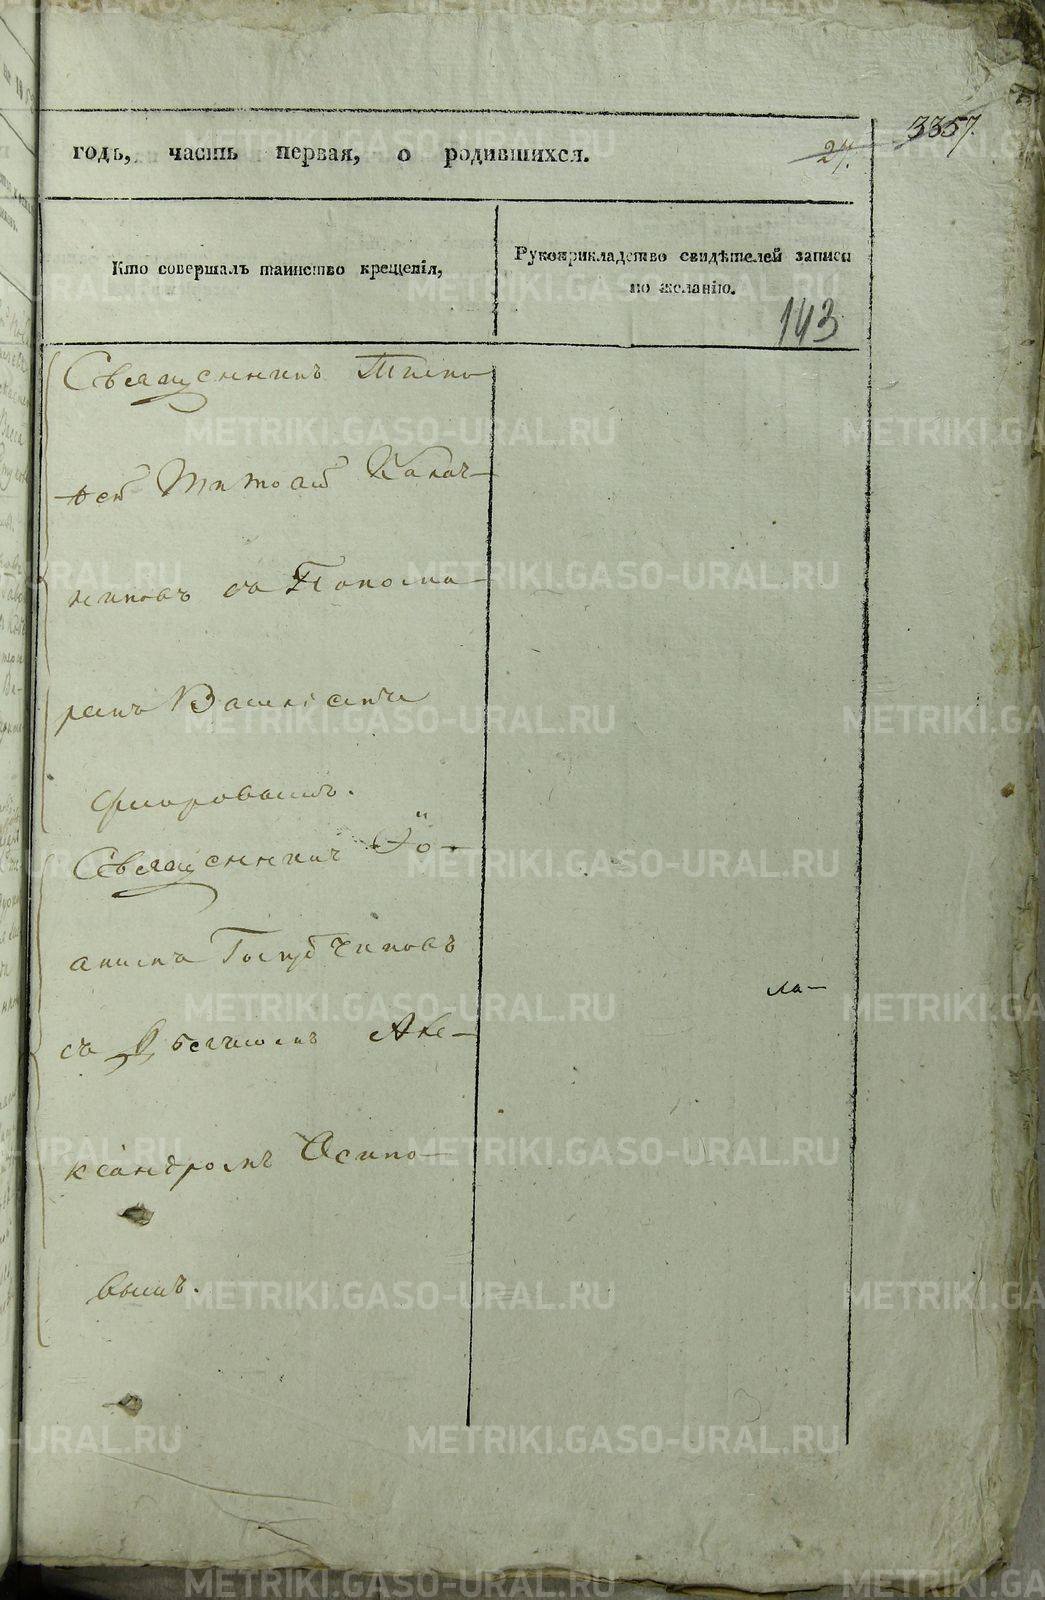 годъ, часть первая, о родившихся.
27.
3357.
Кто совершалъ таинство крещенія,
Рукоприкладство свидѣтелей записи
по желанію.
143
Священникъ Тимо-
фей Титовъ Калач-
никовъ съ Понома-
ремъ Василіемъ
Флоровымъ.
Священникъ Іо-
аннъ Голубчиковъ
съ Дьячкомъ Але-
ксандромъ Осипо-
вымъ.
ла-
METRIKI.GASO-URAL.RU